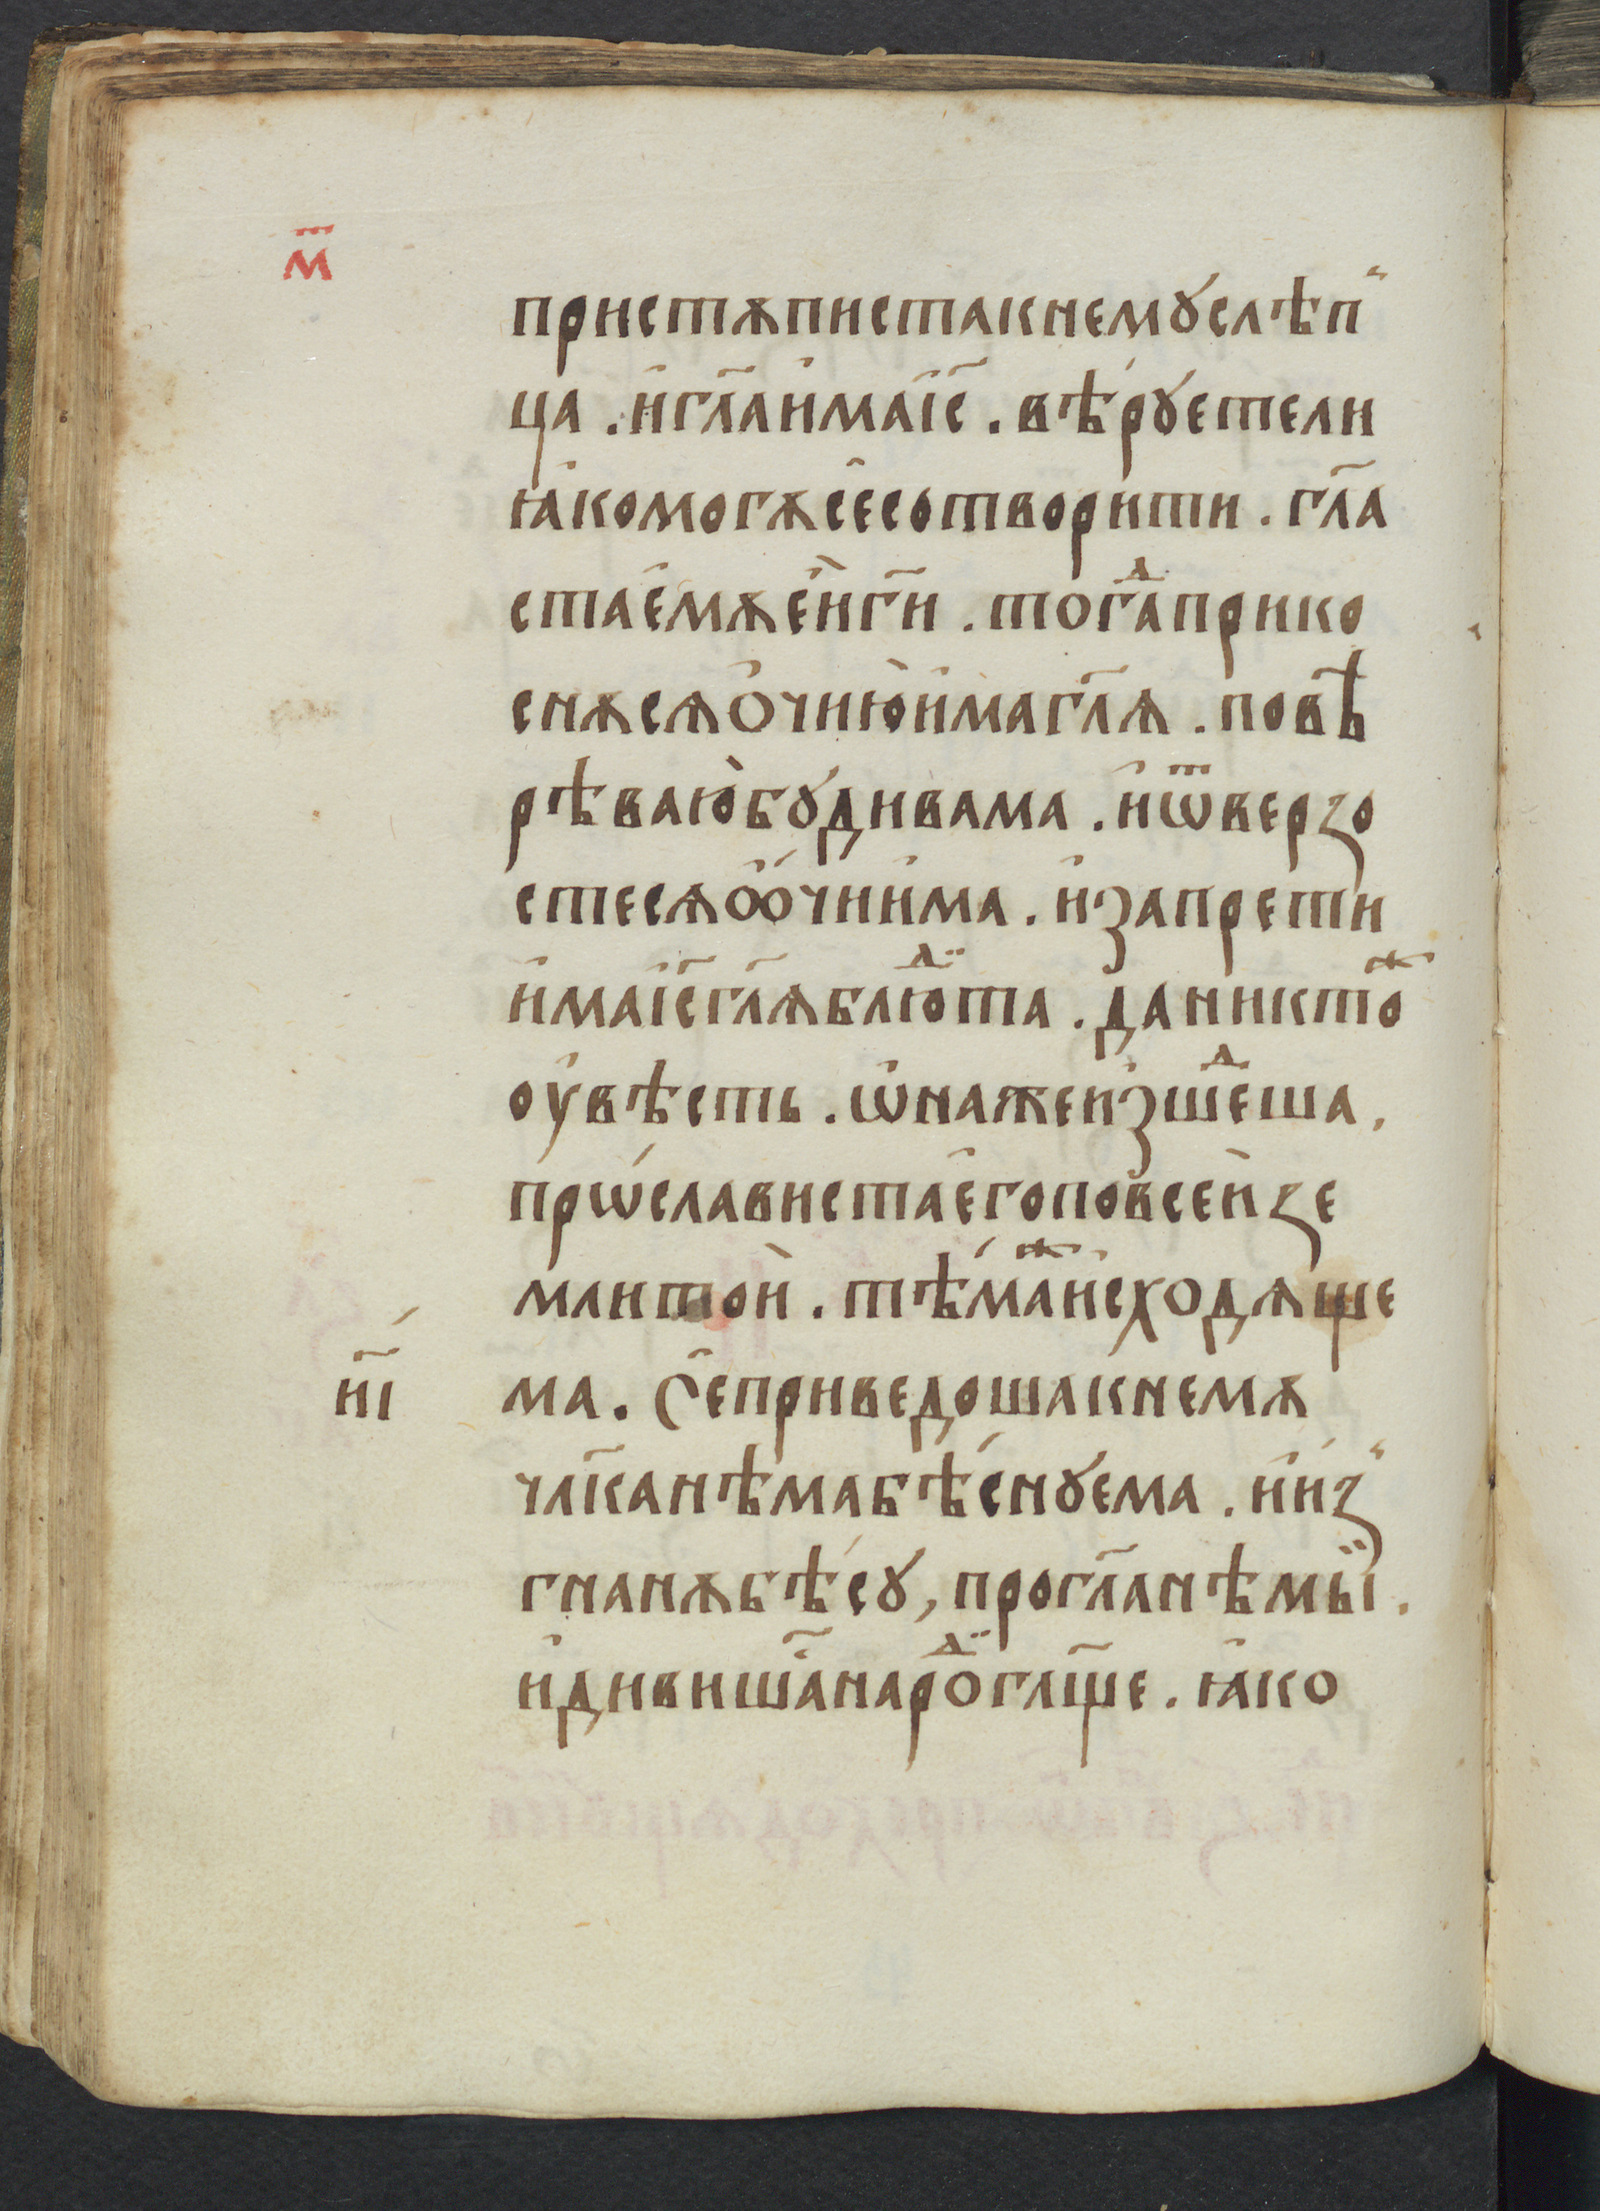 м҃
пристѫпистакнемꙋслѣп̾
ца . и҆гл҃аи҆маі҆с҃ . вѣ́рꙋетели
ꙗ҆комогѫсе҆сотворити . гл҃а
стае҆мѫе҆йг҃и . тогⷣаприко
снѫсѧѻ҆чиюи҆магл҃ѧ . повѣ
рѣваю̀бꙋ́дивама . и҆ѿверзо
стесѧꙭ҆́чии҆ма . и҆запрети
и҆маі҆с҃гл҃ѧблюⷣта . даниктоⷤ
оу҆вѣсть . ѡ҆нажеи҆зшеⷣша .
прѡ́славистае҆гоповсе́йзе
млито́й . тѣ́маⷤи҆сходѧще
н҃і
ма . Се҆приведошакнемѫ
чл҃канѣмабѣ́снꙋема . и҆и́з̾
гнанѫбѣ́сꙋ , прогл҃анѣмыи .
и҆дивиша҃нароⷣгл҃ще . ꙗ҆ко